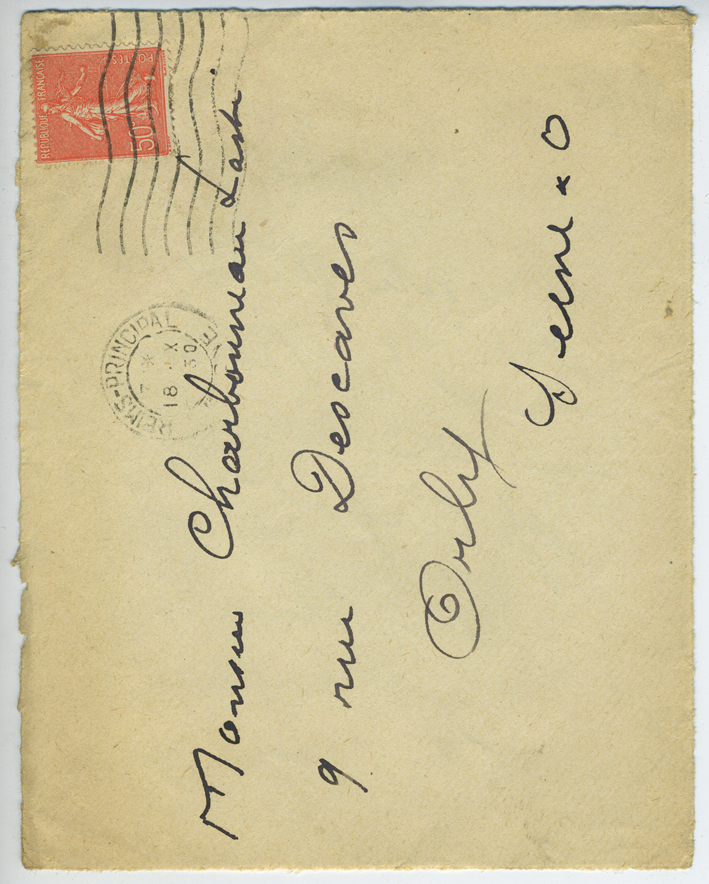 REPUBLIQUE FRANÇAISE
POSTES
50
REIMS-PRINCIPAL
7
18 X
30
Monsieur Charbonneau
9 rue Descaves
Orly
Seine